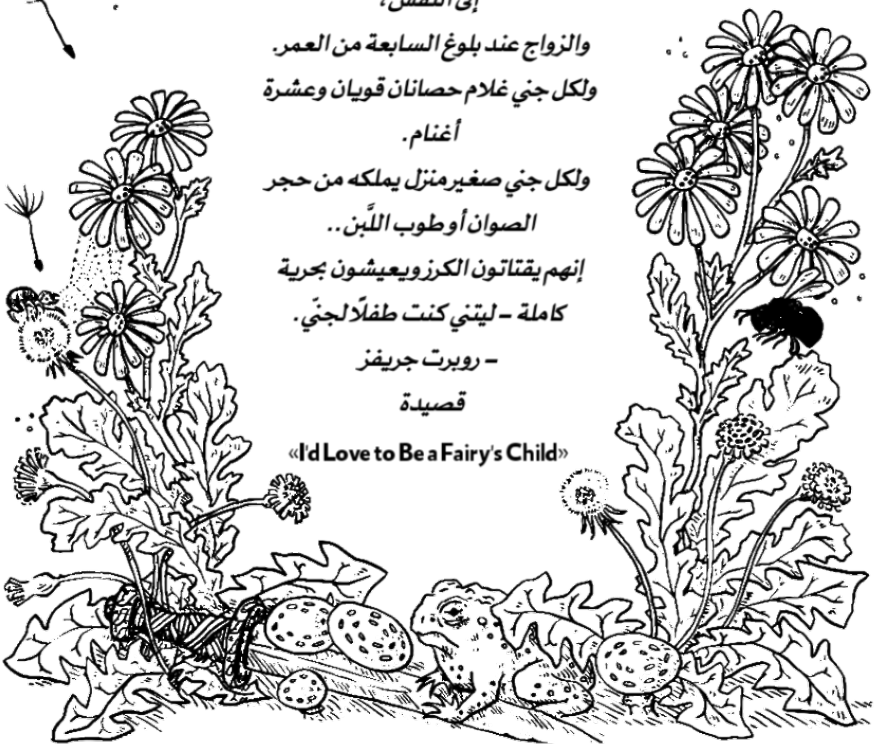 إلى النفس،
والزواج عند بلوغ السابعة من العمر.
ولكل جني غلام حصانان قويان وعشرة
أغنام.
ولكل جني صغير منزل يملكه من حجر
الصوان أو طوب اللَّبن..
إنهم يقتاتون الكرز ويعيشون بحرية
كاملة – ليتني كنت طفلًا لجنيّ.
– روبرت جريفز
قصيدة
«I'd Love to Be a Fairy's Child»